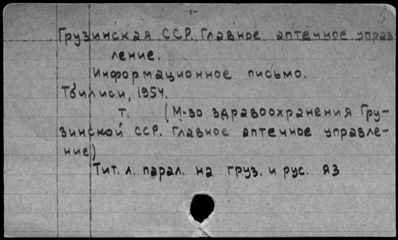 Грузинская ССР. Главное аптечное управ
ление.
Информационное письмо.
Тбилиси, 1954.
т. (М-во здравоохранения Гру-
зинской ССР. Главное аптечное управле-
ние)
Тит. л. парал. на груз. и рус. яз